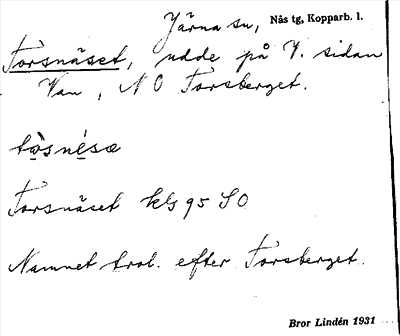 Järna sn, Nås tg, Kopparb. l.
Forsnäset, udde på V. sidan
Van, NO Forsberget.
Forsnäset kbl 95 SO
Namnet trol. efter Forsberget.
Bror Lindén 1931